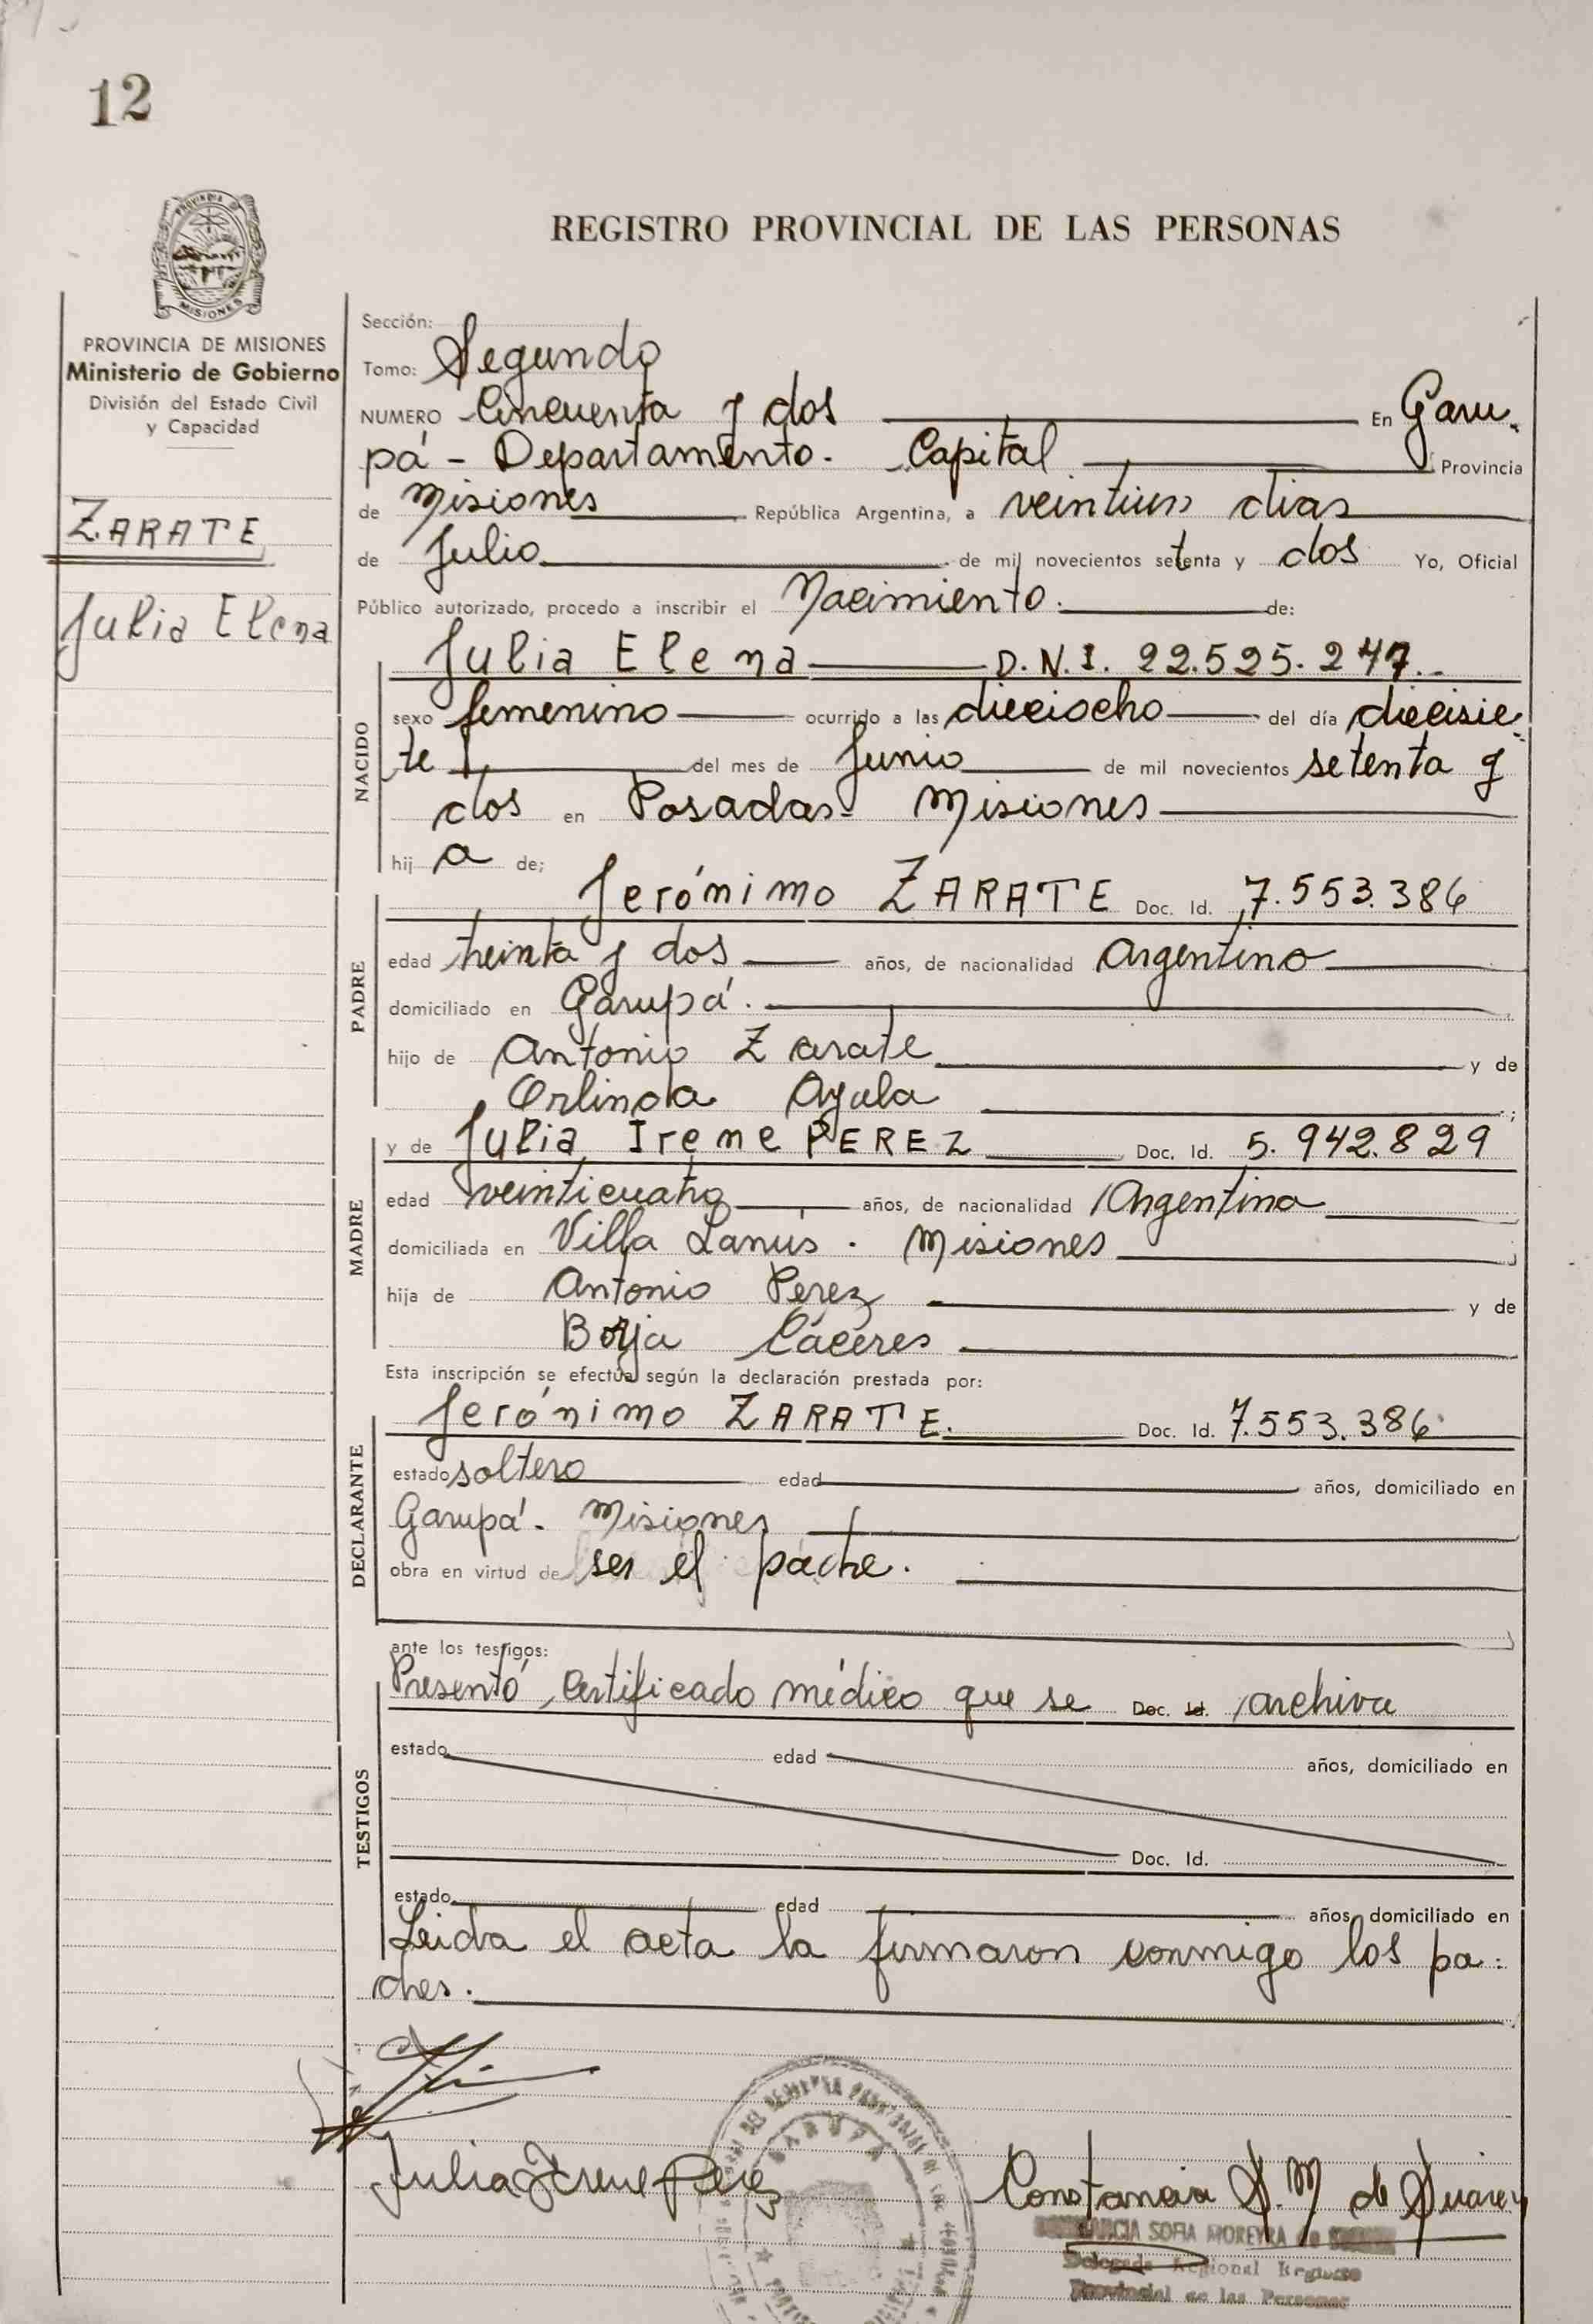 12
REGISTRO PROVINCIAL DE LAS PERSONAS
PROVINCIA DE MISIONES
Ministerio de Gobierno
División del Estado Civil
y Capacidad
ZARATE
Julia Elena
Sección:
Tomo: Segundo
NUMERO Cincuenta y dos En Garu-
pá - Departamento. Capital Provincia
de Misiones República Argentina, a veintiun dias
de Julio de mil novecientos setenta y dos Yo, Oficial
Público autorizado, procedo a inscribir el Nacimiento. de:
NACIDO
Julia Elena D.N.I. 22.525.247.
sexo femenino ocurrido a las dieciocho del día diecisie-
te del mes de Junio de mil novecientos setenta y
dos en Posadas- Misiones
hij a de;
PADRE
Jerónimo ZARATE Doc. Id. 7.553.386
edad treinta y dos años, de nacionalidad Argentino
domiciliado en Garupá.
hijo de Antonio Zarate y de
Orlinda Ayala ;
MADRE
y de Julia Irene PEREZ Doc. Id. 5.942.829
edad veinticuatro años, de nacionalidad Argentina
domiciliada en Villa Lanús. Misiones
hija de Antonio Perez y de
Borja Cáceres
Esta inscripción se efectúa según la declaración prestada por:
DECLARANTE
Jerónimo ZARATE. Doc. Id. 7.553.386
estado soltero edad años, domiciliado en
Garupá. Misiones
obra en virtud de ser el padre.
ante los testigos:
TESTIGOS
Presentó certificado médico que se Doc. Id. archiva
estado edad años, domiciliado en
Doc. Id.
estado edad años, domiciliado en
Leida el acta la firmaron conmigo los pa-
dres.
Julia Irene Perez
Constancia S. M de Suarez
SOFIA MOREYRA de
Delegada Regional Registro
Provincial de las Personas
GARUPA